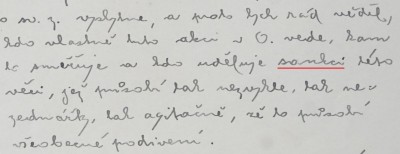 o sv. z. vyplyne, a proto bych rád věděl,
kdo vlastně tuto akci v O. vede, kam
to směřuje a kdo uděluje sankci této
věci, jež působí tak nezvykle, tak ne-
zednářsky, tak agitačně, že to působí
všeobecné podivení.